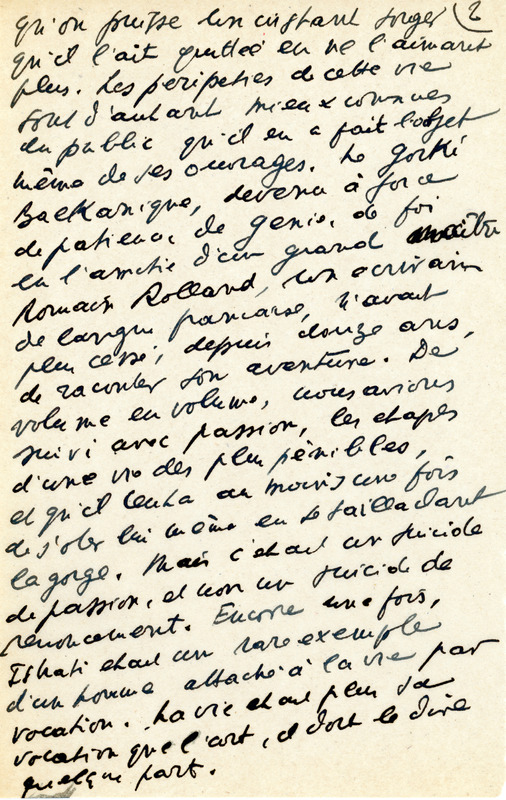 qu'on puisse un instant songer 2
qu'il l'ait quittée en ne l'aimant
plus. Les péripéties de cette vie
sont d'autant mieux connues
du public qu'il en a fait l'objet
même de ses ouvrages. Le Gorki
Balkanique, devenu à force
de patience, de génie, de foi
en l'amitié d'un grand maître
Romain Rolland, un écrivain
de langue française, n'avait
plus cessé, depuis douze ans,
de raconter son aventure. De
volume en volume, nous avions
suivi avec passion, les étapes
d'une vie des plus pénibles,
et qu'il tenta au moins une fois
de s'ôter lui même en se tailladant
la gorge. Mais c'était un suicide
de passion, et non un suicide de
renoncement. Encore une fois,
Istrati était un rare exemple
d'un homme attaché à la vie par
vocation. La vie était plus sa
vocation que l'art, il doit le dire
quelque part.